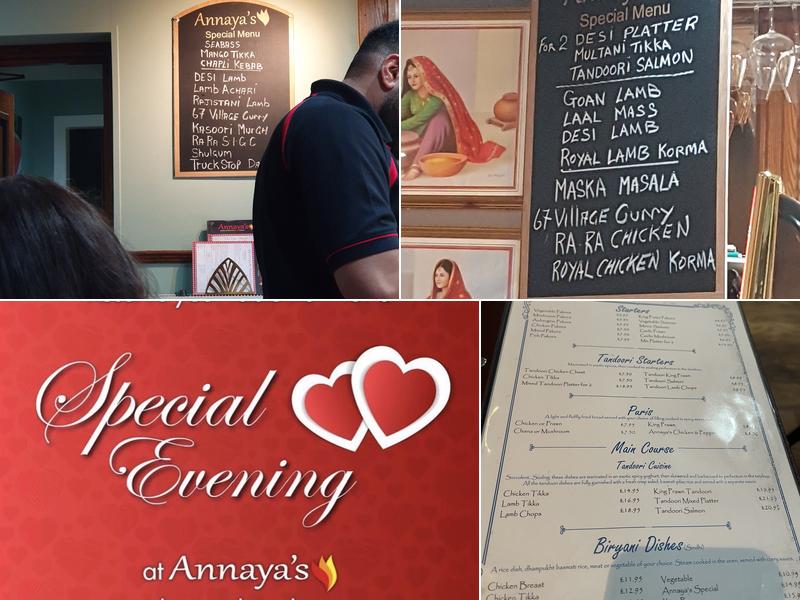 Annaya's
Special Menu
SEABASS
MANGO TIKKA
CHAPLI KEBAB
DESI LAMB
LAMB ACHARI
RAJISTANI LAMB
67 VILLAGE CURRY
KASOORI MURGH
RA RA S.I.G.C
Shulgum
TRUCK STOP
Annaya's
Special Menu
FOR 2 DESI PLATTER
MULTANI TIKKA
TANDOORI SALMON
GOAN LAMB
LAAL MASS
DESI LAMB
ROYAL LAMB KORMA
MASKA MASALA
67 VILLAGE CURRY
RA.RA CHICKEN
ROYAL CHICKEN KORMA
Special
Evening
at Annaya's
Starters
Vegetable Pakora
Mushroom Pakora
Aubergine Pakora
Chicken Pakora
Mixed Pakora
Fish Pakora
King Prawn Pakora
Tandoori Starters
Tandoori Chicken Chaat £7.50 Tandoori King Prawn
Chicken Tikka £7.50 Tandoori Salmon
Mixed Tandoori Platter for 2 £18.95 Tandoori Lamb Chops
Puris
A light and fluffy fried bread served with your choice of filling cooked in spicy sauce
Chicken or Prawn £7.95 King Prawn
Chana or Mushroom £7.50 Annaya's Chicken & Pepper
Main Course
Tandoori Cuisine
Chicken Tikka £14.95 King Prawn Tandoori £19.95
Lamb Tikka £16.95 Tandoori Mixed Platter £21.95
Lamb Chops £18.95 Tandoori Salmon £20.95
Biryani Dishes (Sindhi)
Chicken Breast £11.95 Vegetable £10.95
Chicken Tikka £12.95 Annaya's Special